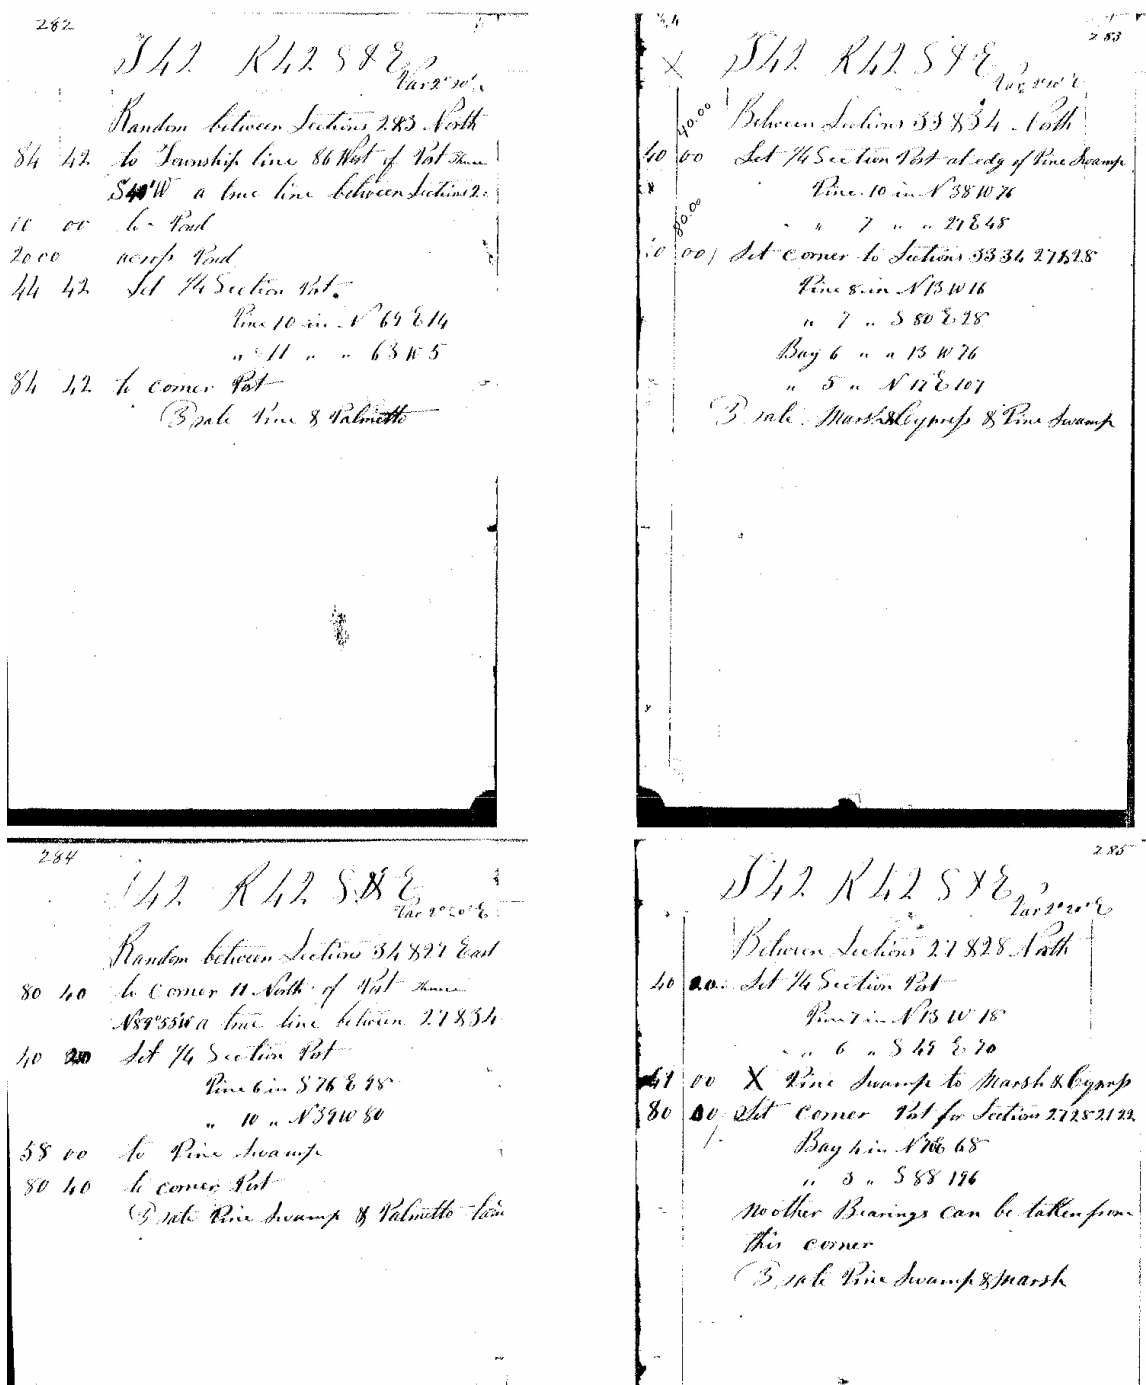 282
T42 R42 S & E
Var 2° 20'
Random between Sections 2 & 3 North
84 42 to Township line 86 West of Post Thence
W a true line between Sections 2
10 00 to Pond
20 00 across Pond
44 42 Set 1/4 Section Post.
Pine 10 in N 69 E 14
" 11 " " 63 W 5
84 42 to corner Post
3 rate Pine & Palmetto
283
T42 R42 S & E
Var 2° 20' E
40.00
Between Sections 33 & 34 North
40 00 Set 1/4 Section Post at edg of Pine Swamp
Pine 10 in N 38 W 76
" 7 " " 27 E 48
80.00
00 Set corner to Sections 33 34 27 & 28
Pine 8 in N 13 W 16
" 7 " S 80 E 28
Bay 6 " " 13 W 76
" 5 " N 17 E 107
3 rate Marsh & Cypress & Pine Swamp
284
T42 R42 S & E
Var 2° 20' E
Random between Sections 34 & 27 East
80 40 to Corner 11 North of Post Thence
N 89° 55 W a true line between 27 & 34
40 20 Set 1/4 Section Post
Pine 6 in S 76 E 98
" 10 " N 39 W 80
58 00 to Pine Swamp
80 40 to corner Post
3 rate Pine Swamp & Palmetto
285
T42 R42 S & E
Var 2° 20' E
Between Sections 27 & 28 North
40 00 Set 1/4 Section Post
Pine 7 in N 13 W 18
" 6 " S 49 E 70
00 X Pine Swamp to Marsh & Cyprsp
80 00 Set corner Post for Sections 27 28 21 22
Bay 4 in N 68
" 3 " S 88 196
no other Bearings can be taken from
this corner
3 rate Pine Swamp & Marsh